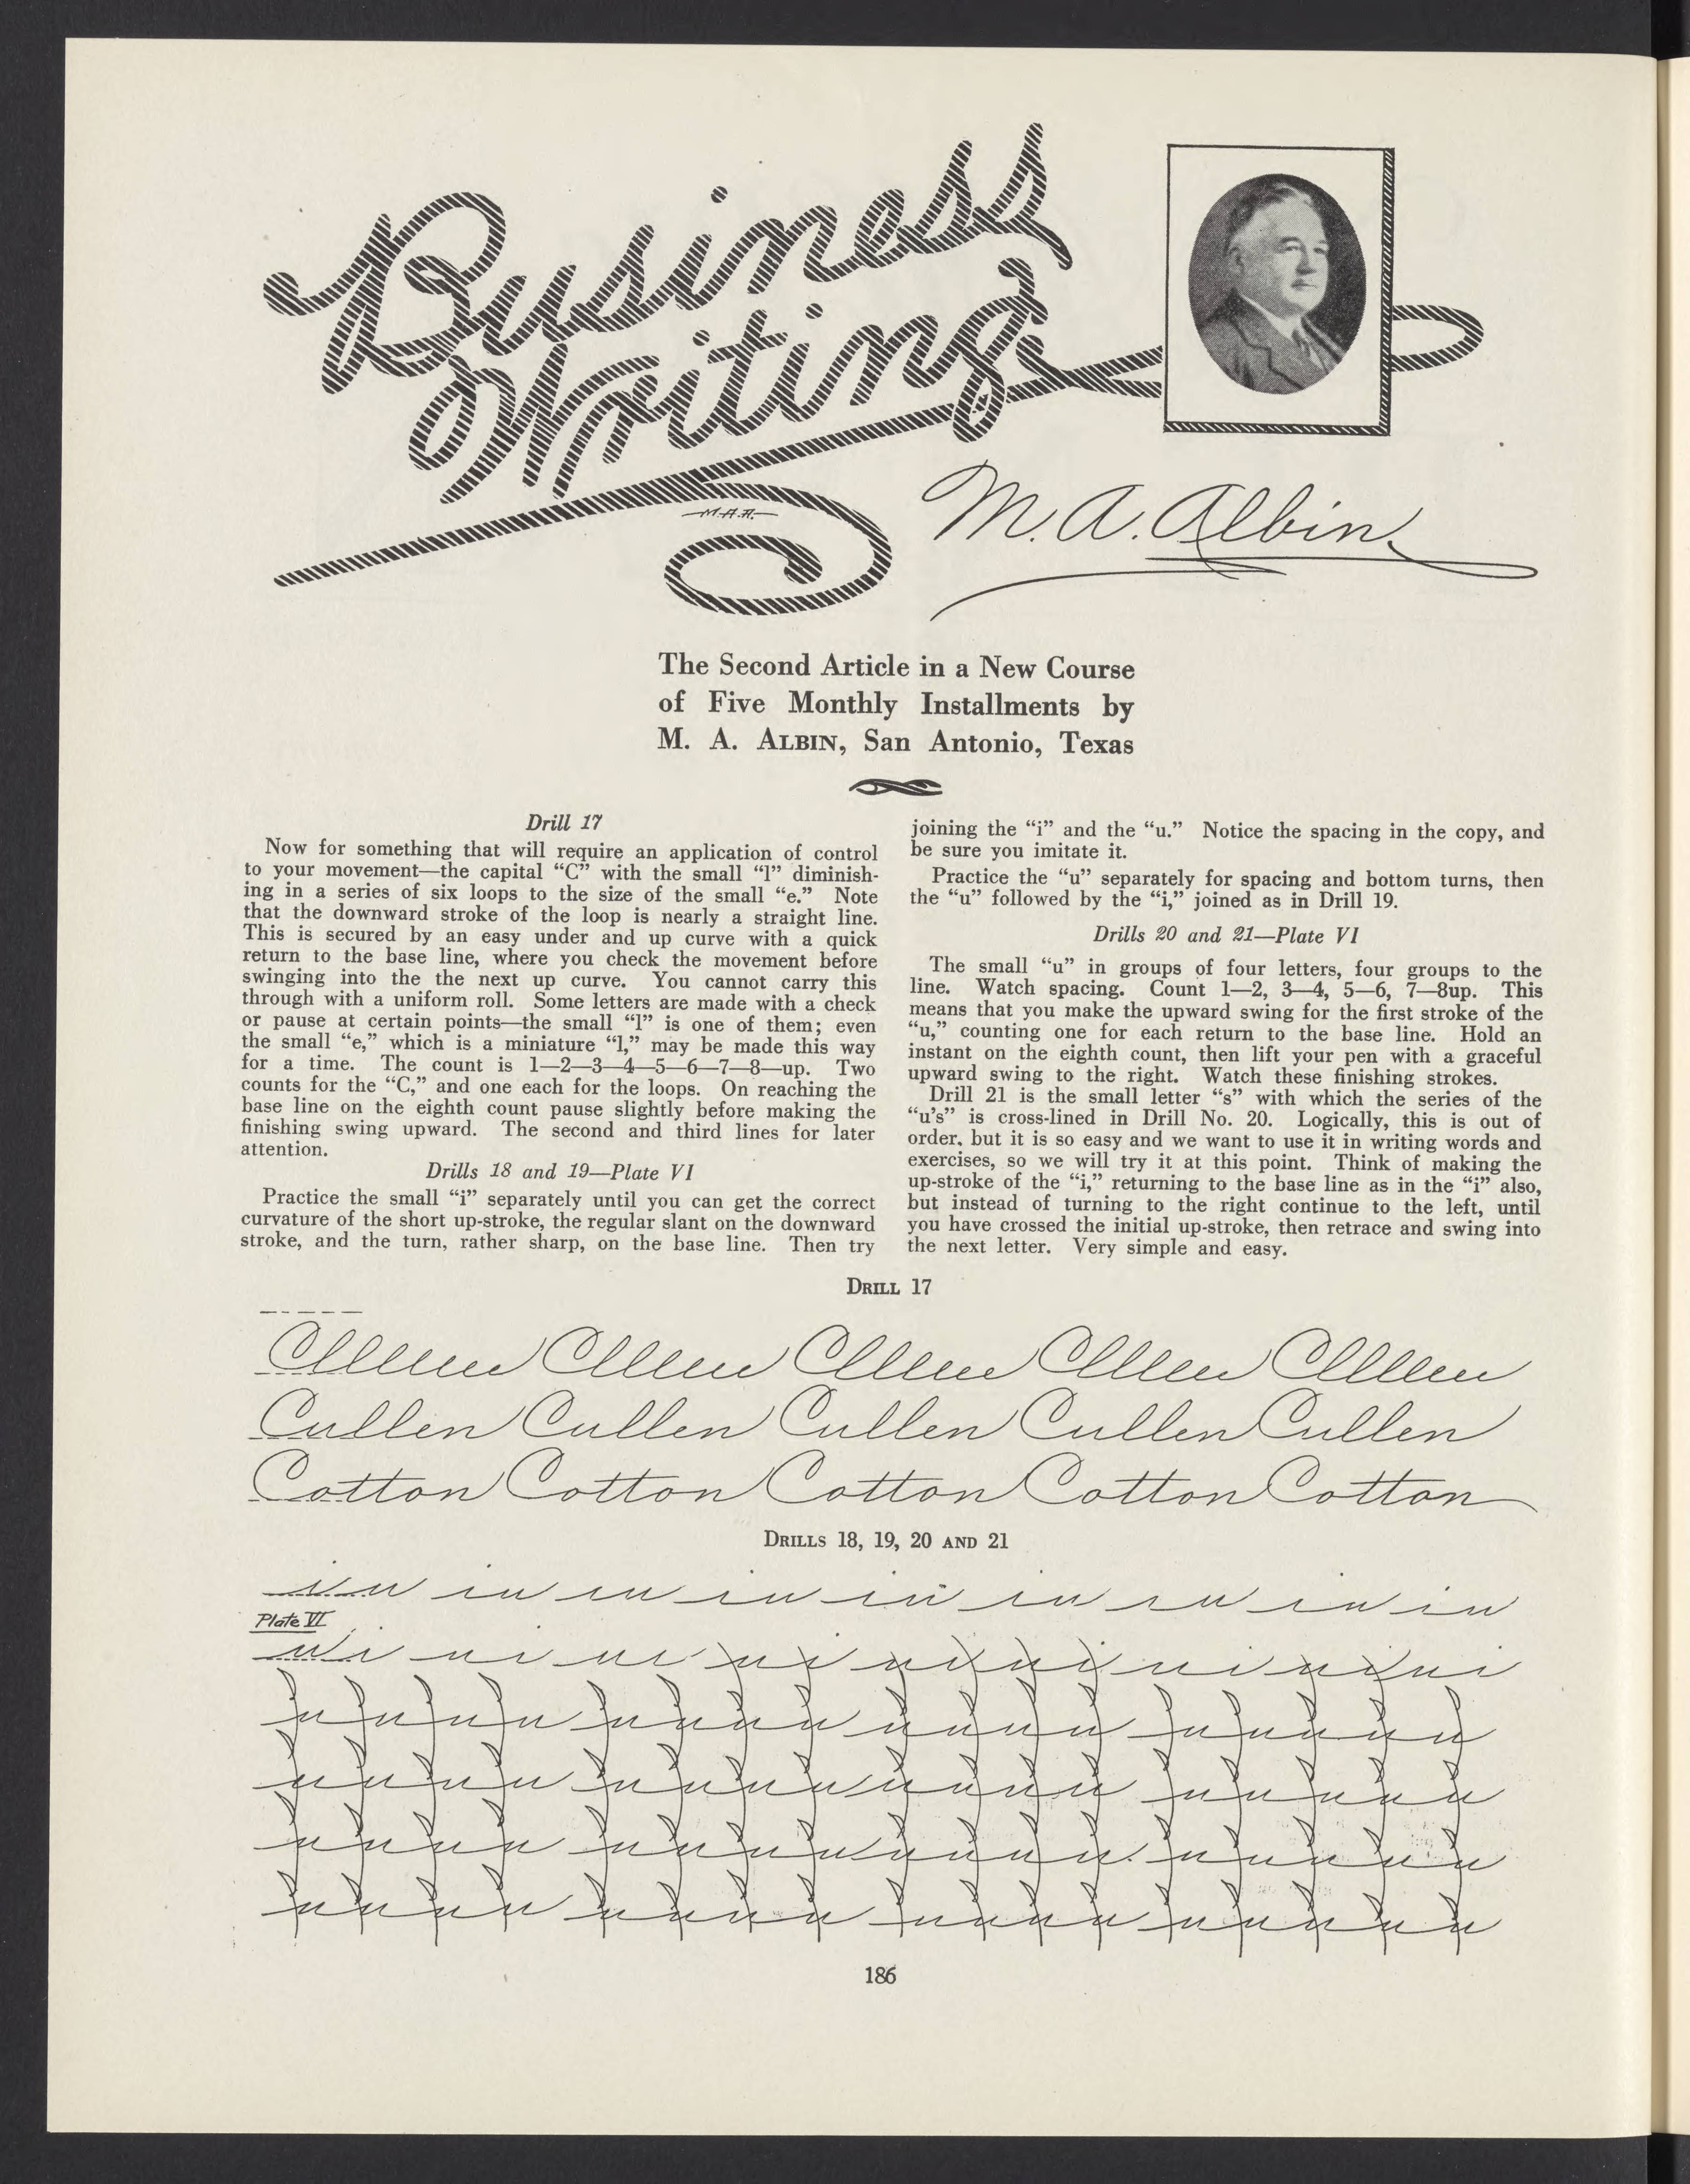 Business
Writing
M.A.A.
M. A. Albin
The Second Article in a New Course
of Five Monthly Installments by
M. A. ALBIN, San Antonio, Texas
Drill 17
Now for something that will require an application of control
to your movement—the capital “C” with the small “l” diminish-
ing in a series of six loops to the size of the small “e.” Note
that the downward stroke of the loop is nearly a straight line.
This is secured by an easy under and up curve with a quick
return to the base line, where you check the movement before
swinging into the the next up curve. You cannot carry this
through with a uniform roll. Some letters are made with a check
or pause at certain points—the small “l” is one of them; even
the small “e,” which is a miniature “l,” may be made this way
for a time. The count is 1—2—3—4—5—6—7—8—up. Two
counts for the “C,” and one each for the loops. On reaching the
base line on the eighth count pause slightly before making the
finishing swing upward. The second and third lines for later
attention.
Drills 18 and 19—Plate VI
Practice the small “i” separately until you can get the correct
curvature of the short up-stroke, the regular slant on the downward
stroke, and the turn, rather sharp, on the base line. Then try
joining the “i” and the “u.” Notice the spacing in the copy, and
be sure you imitate it.
Practice the “u” separately for spacing and bottom turns, then
the “u” followed by the “i,” joined as in Drill 19.
Drills 20 and 21—Plate VI
The small “u” in groups of four letters, four groups to the
line. Watch spacing. Count 1—2, 3—4, 5—6, 7—8up. This
means that you make the upward swing for the first stroke of the
“u,” counting one for each return to the base line. Hold an
instant on the eighth count, then lift your pen with a graceful
upward swing to the right. Watch these finishing strokes.
Drill 21 is the small letter “s” with which the series of the
“u’s” is cross-lined in Drill No. 20. Logically, this is out of
order, but it is so easy and we want to use it in writing words and
exercises, so we will try it at this point. Think of making the
up-stroke of the “i,” returning to the base line as in the “i” also,
but instead of turning to the right continue to the left, until
you have crossed the initial up-stroke, then retrace and swing into
the next letter. Very simple and easy.
DRILL 17
Cullen Cullen Cullen Cullen Cullen
Cotton Cotton Cotton Cotton Cotton
DRILLS 18, 19, 20 AND 21
iu iu iu iu iu iu iu iu iu
Plate VI
ui ui ui ui ui ui ui ui ui
uuuu uuuu uuuu uuuuu
uuuu uuuu uuuu uuuuu
uuuu uuuu uuuu uuuuu
uuuu uuuu uuuu uuuuu
186